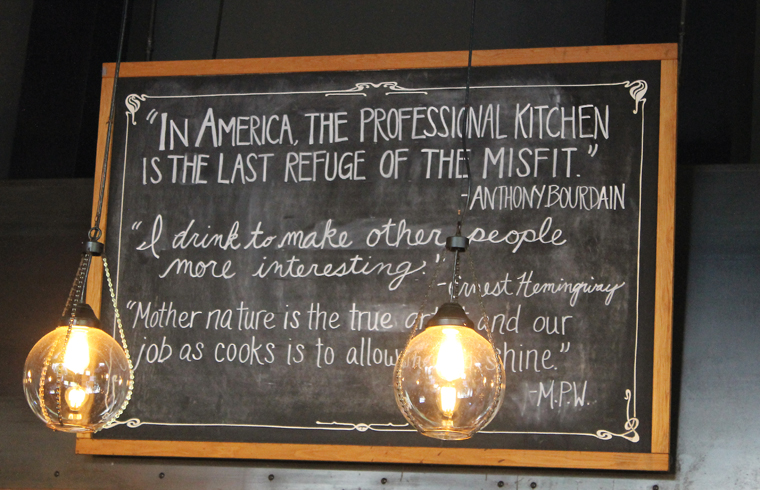 "IN AMERICA, THE PROFESSIONAL KITCHEN
IS THE LAST REFUGE OF THE MISFIT."
-ANTHONY BOURDAIN
"I drink to make other people
more interesting."
-Ernest Hemingway
"Mother nature is the true and our
job as cooks is to allow shine."
-M.P.W.